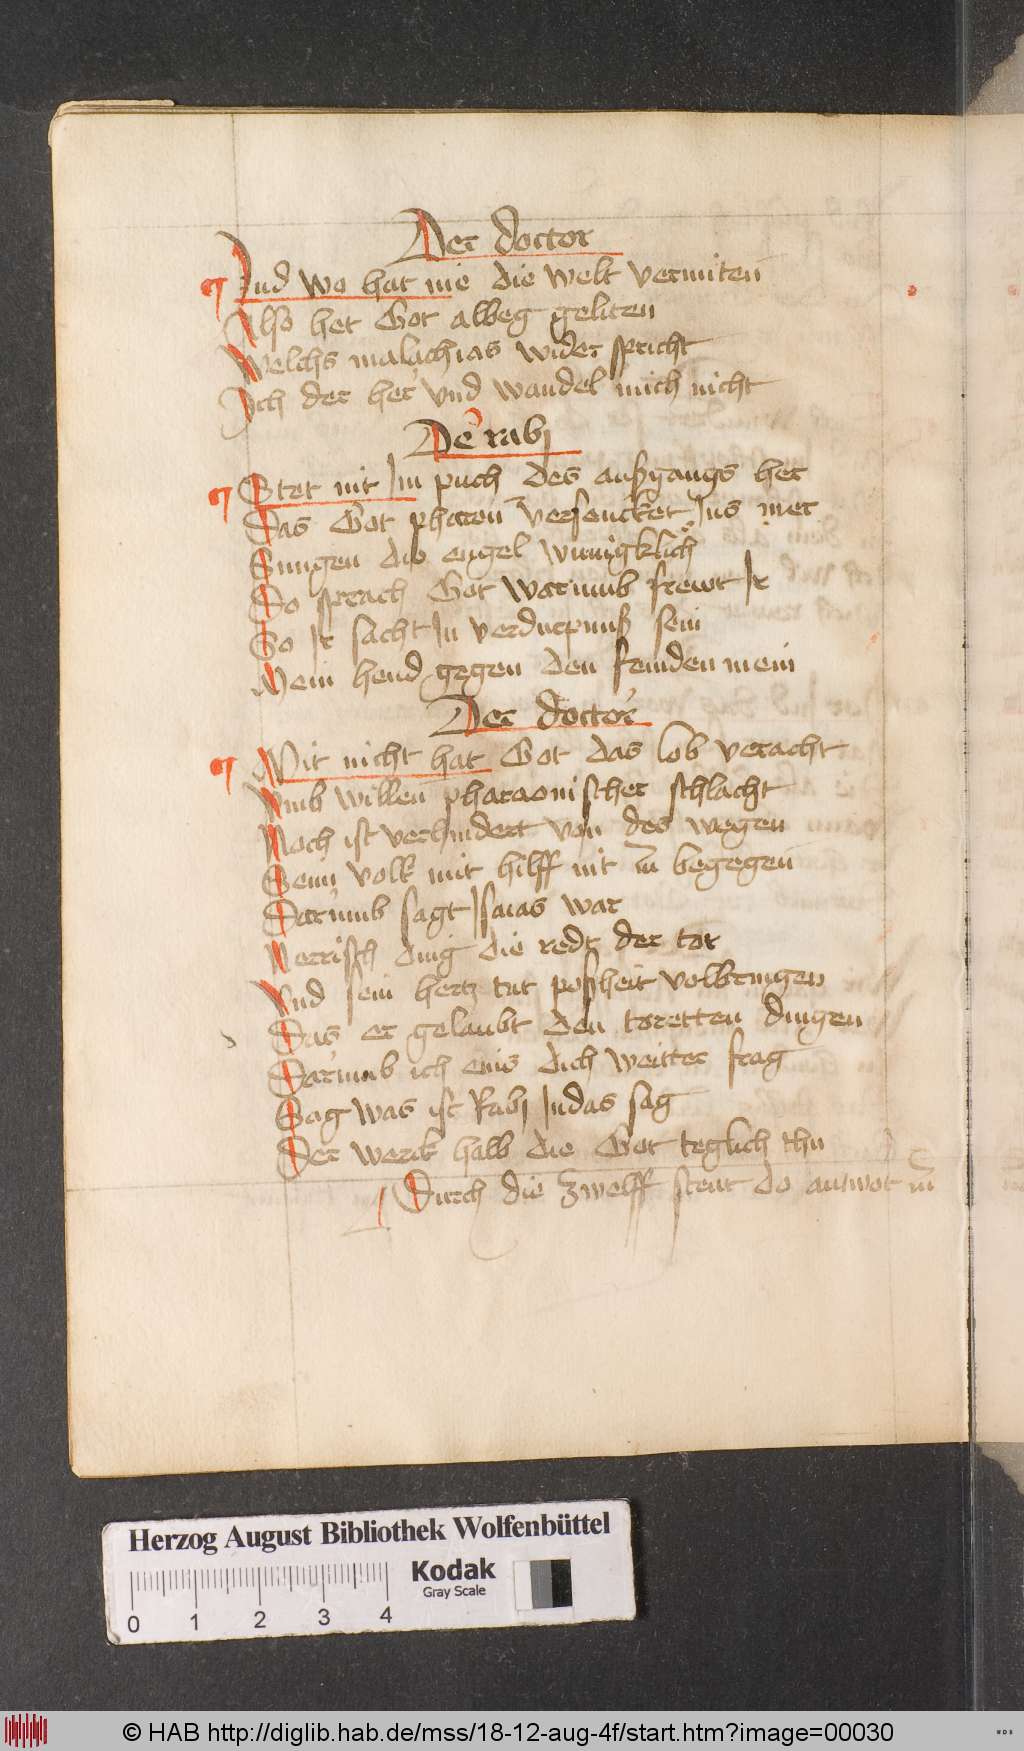 Der doctor
¶ Vnd wo hat nie die welt vermiten
Also het Got albeg geliten
Welchs malachias wider spricht
Ich der her vnd wandel mich nicht
De rabj
¶ Stet nit Jm puch des außgangs her
Das Got pharon versencket Jns mer
Sungen die engel wunigklich
Do sprach Got warumb frewt Jr
So Jr sacht Jn verdurpnuß sein
Mein hend gegen den feinden mein
Der doctor
¶ Mit nicht hat Got das lob veracht
Vmb willen pharaonischer schlacht
Noch ist verhindert von des wegen
Seim volk mit hilff nit zu begegen
Darumb sagt Jsaias war
Nerrisch ding die redt der tor
Vnd sein hertz tut poßheit volbringen
Das er gelaubt den toretten dingen
Darumb ich eins dich weitter frag
Sag was ist Rabj Judas sag
Der werck halb die Got teglich thu
Durch die zwelff stent do antwot zu
Herzog August Bibliothek Wolfenbüttel
Kodak
Gray Scale
0 1 2 3 4
© HAB http://diglib.hab.de/mss/18-12-aug-4f/start.htm?image=00030
WDB